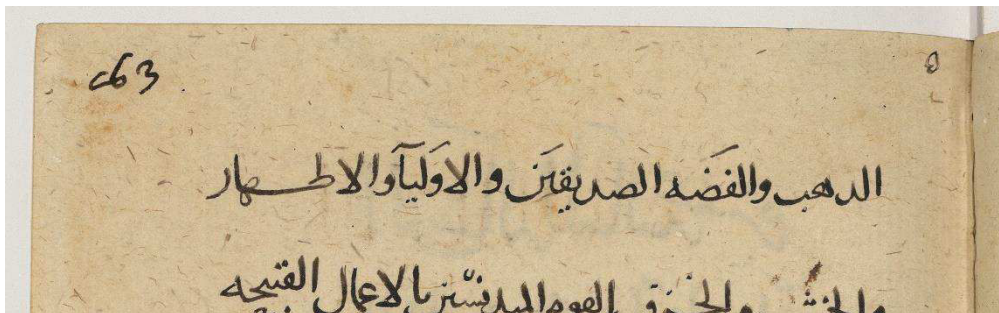 الدهب والفضه الصديقين والاوليآ والاطهار
والخشب والخزف القوم المدنسين بالاعمال القبيحه